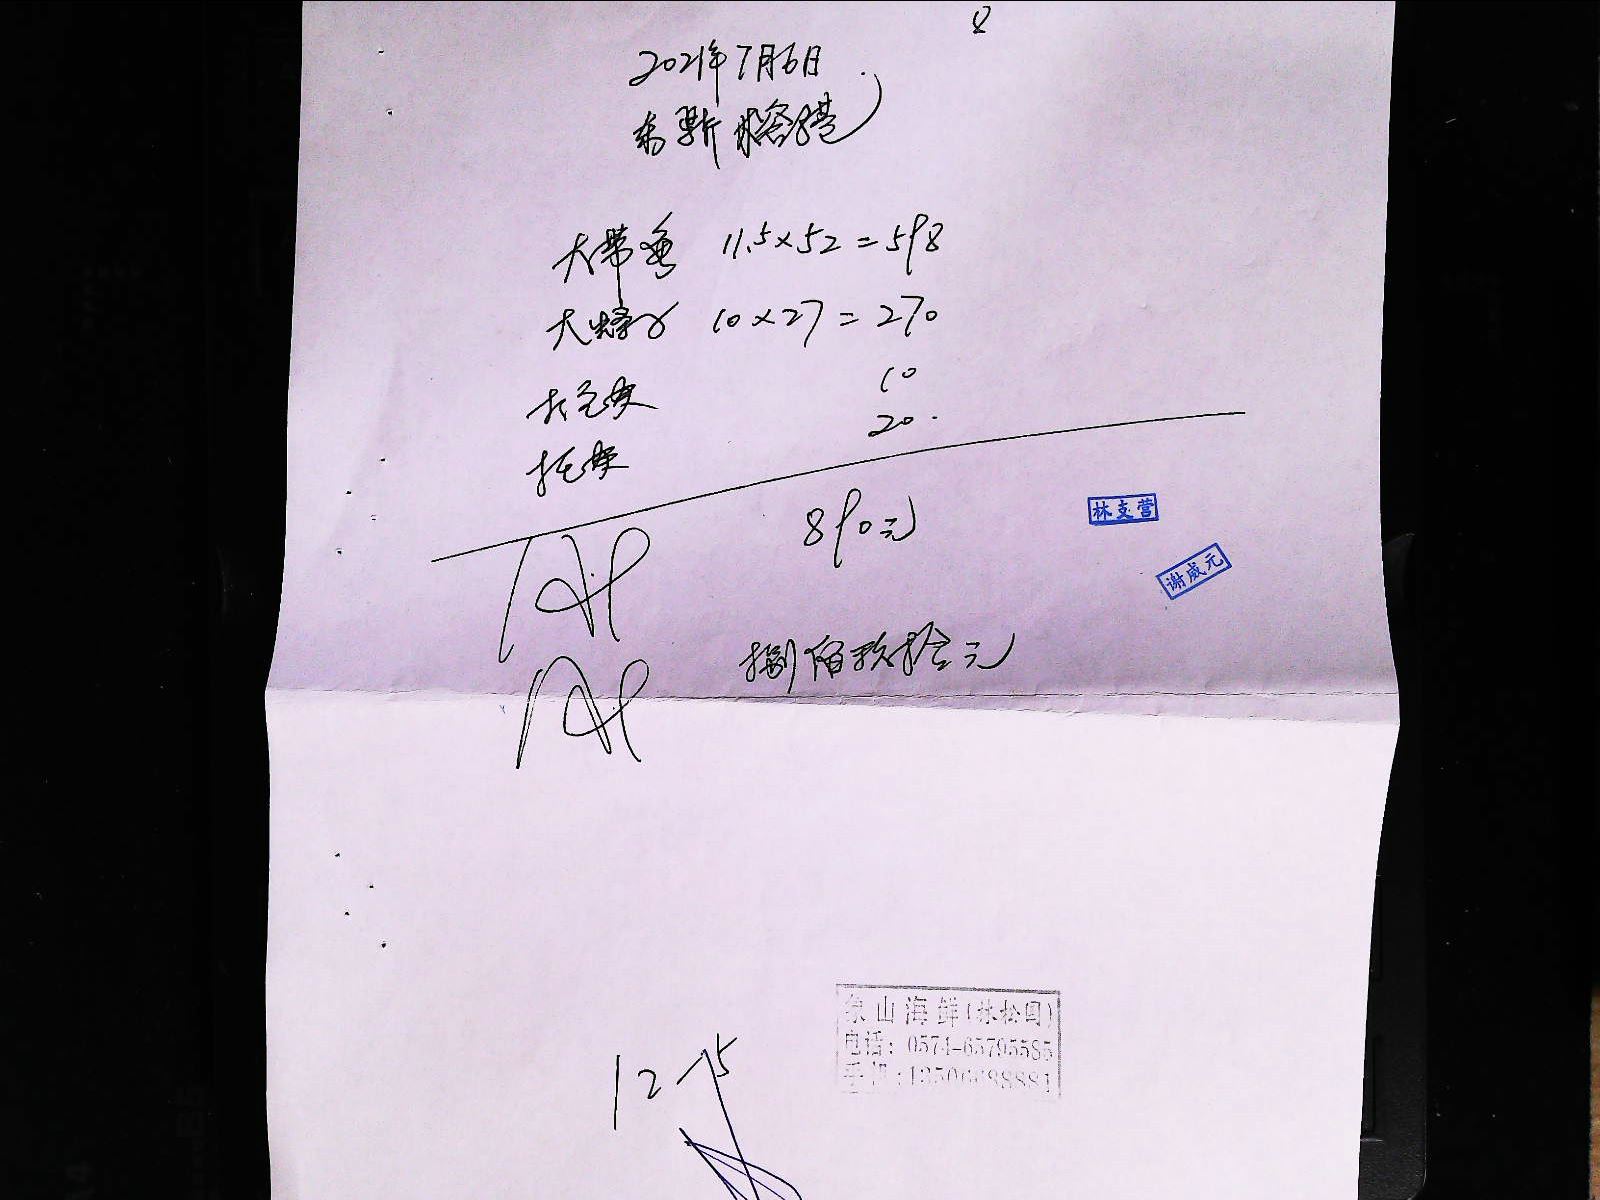 8
2021年7月6日
大带鱼 11.5×52=598
大蟶子 10×27=270
打包费 10
托费 20
890元
林支营
谢威元
捌佰玖拾元
象山海鲜(林松国)
电话: 0574-65795585
手机:
12-15